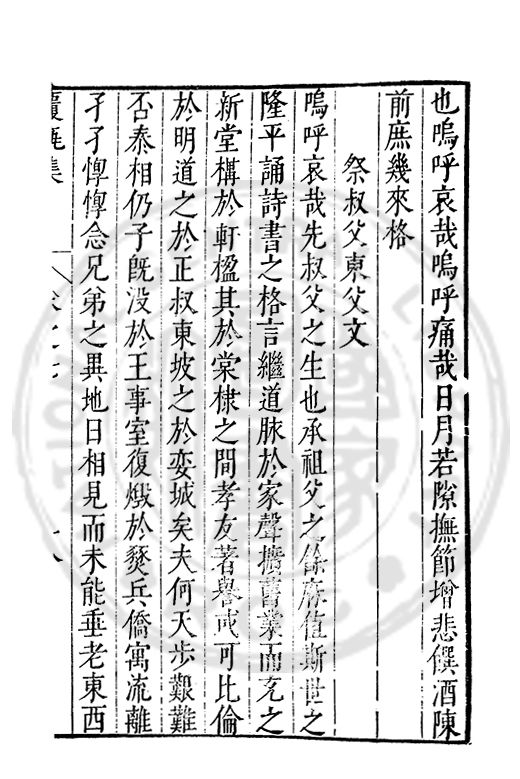 也嗚呼哀哉嗚呼痛哉日月若隙撫節增悲饌酒陳
前庶幾來格
祭叔父東父文
嗚呼哀哉先叔父之生也承祖父之餘廕值斯世之
隆平誦詩書之格言繼道脉於家聲擴舊業而克之
新堂構於軒楹其於棠棣之間孝友著譽或可比倫
於明道之於正叔東坡之於娈城矣夫何天步艱難
否泰相仍子旣没於王事室復燬於燹兵僑寓流離
孑孑惸惸念兄弟之異地日相見而未能垂老東西
集
卷之七
十八